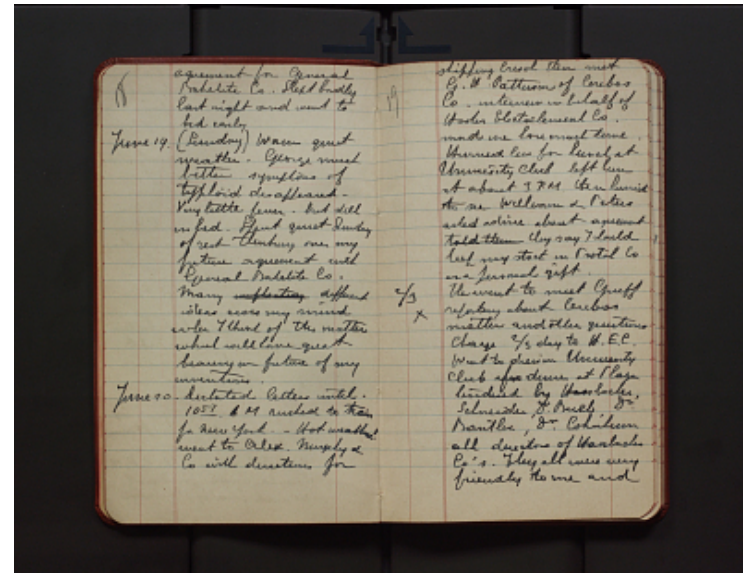 18
agreement for General
Bakelite Co. Slept badly
last night and went to
bed early
June 19. (Sunday) Warm quiet
weather. George much
better symptoms of
typhoid disappeared -
Very little fever. - but still
in bed. Spent quiet Sunday
of rest thinking over my
future agreement with
General Bakelite Co.
Many different
ideas cross my mind
when I think of this matter
which will have great
bearing on future of my
inventions.
June 20. Dictated letters until
10 57 A M rushed to train
for New York. - Hot weather
went to Alex. Murphy &
Co with directions for
19
shipping then met
E. H. Patterson of Cerebos
Co. interview in behalf of
Hooker Electrochemical Co.
made me lose much time.
lunch at
University Club left him
at about 3 P.M. then hurried
to see William &  Peters
asked advice about agreement
told them they say I could
keep my stock in Co
as a personal gift.
2/3
x
then went to meet
reporting about Cerebos
matter and other questions
Charge 2/3 day to H.E.C.
Went to dress in University
Club dinner at Plaza
tendered by Hasslacher,
all directors of Hasslacher
Co's. They all were very
friendly to me and